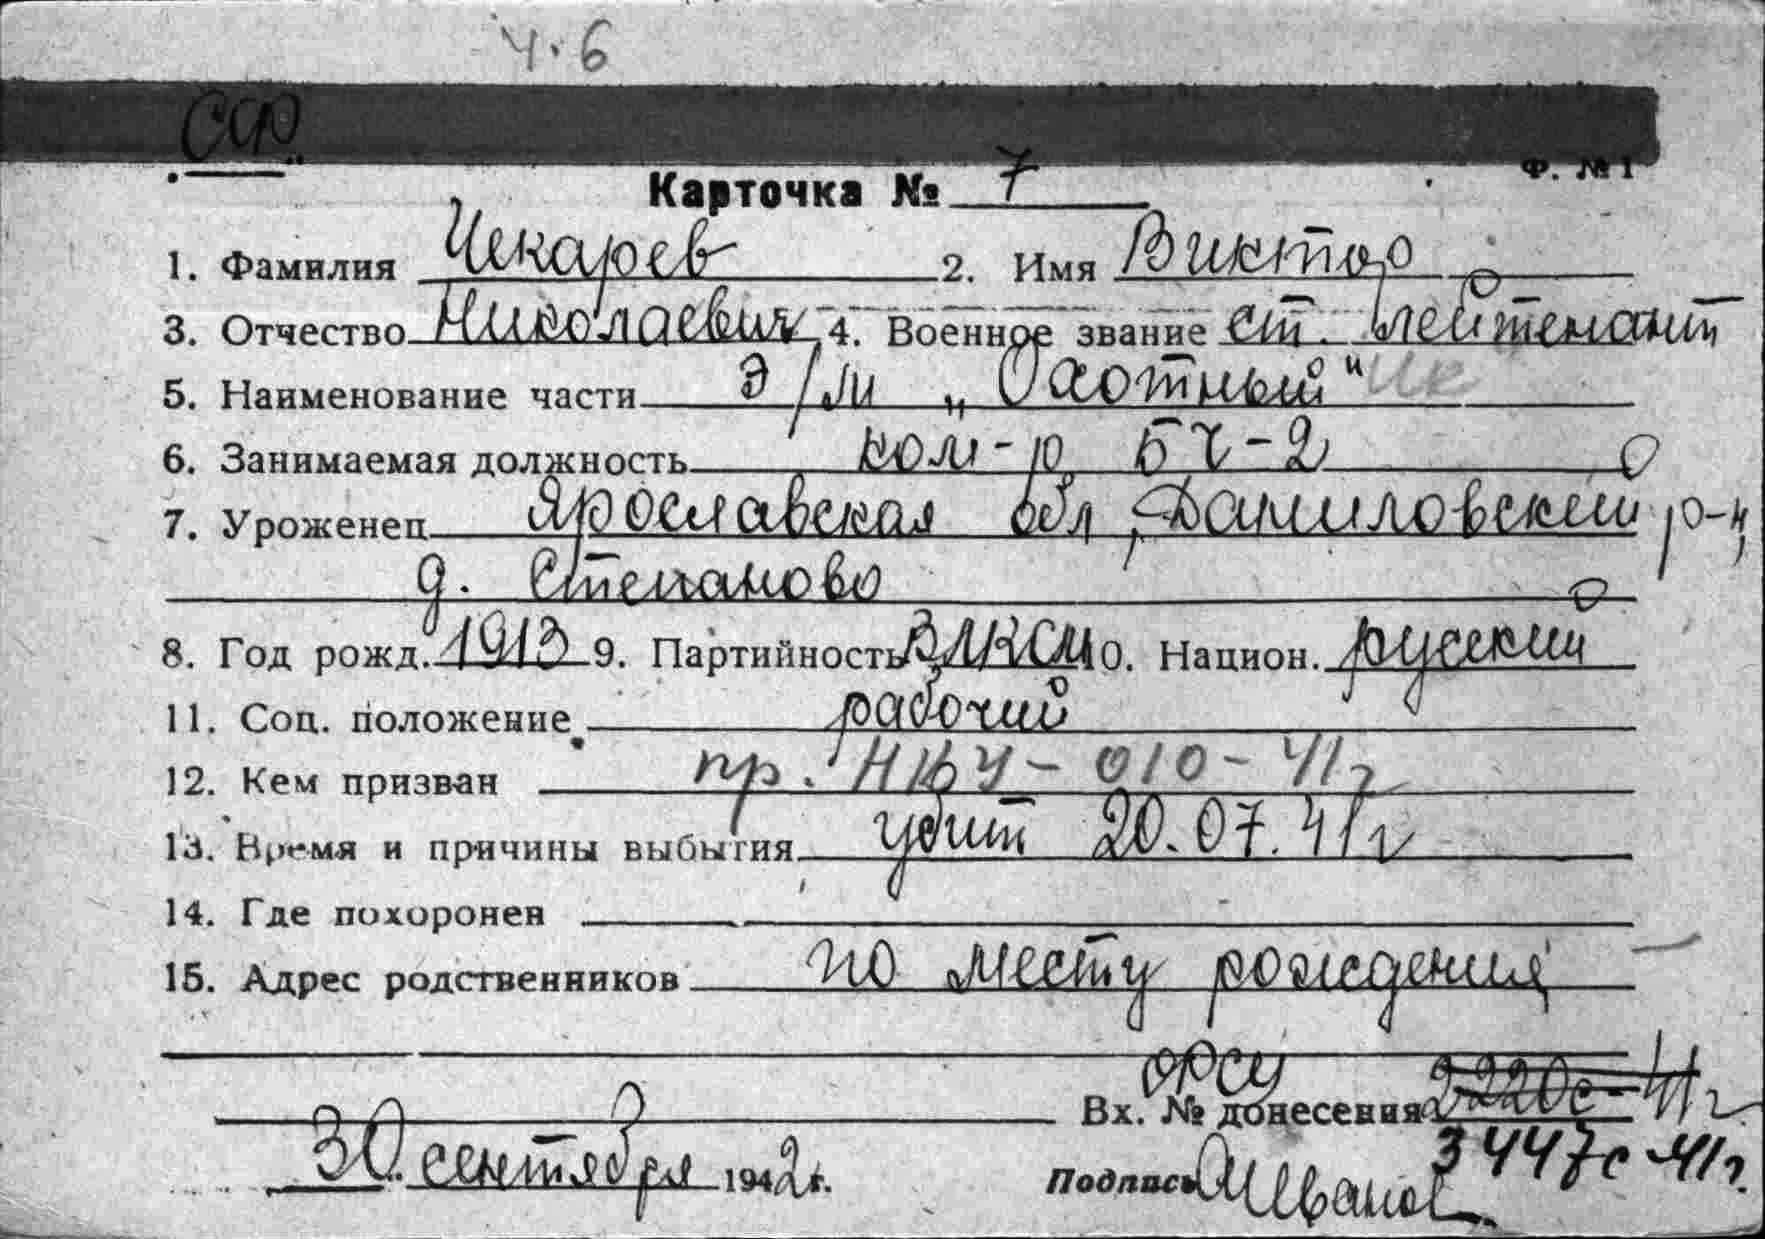 ч. 6
СФ
Ф. № 1
Карточка № 7
1. Фамилия Чекарев 2. Имя Виктор
3. Отчество Николаевич 4. Военное звание ст. лейтенант
5. Наименование части Э/м „Охотный"
6. Занимаемая должность ком-р БЧ-2
7. Уроженец Ярославская обл, Даниловский р-н,
д. Степаново
8. Год рожд. 1913 9. Партийность ВЛКСМ 10. Национ. русский
11. Соц. положение рабочий
12. Кем призван пр. 010-41г
13. Время и причины выбытия убит 20.07.41г
14. Где похоронен
15. Адрес родственников по месту рождения
ОРСУ
Вх. № донесения 2220с-41г
3447с-41г.
30 сентября 1942 г. Подпись Иванов